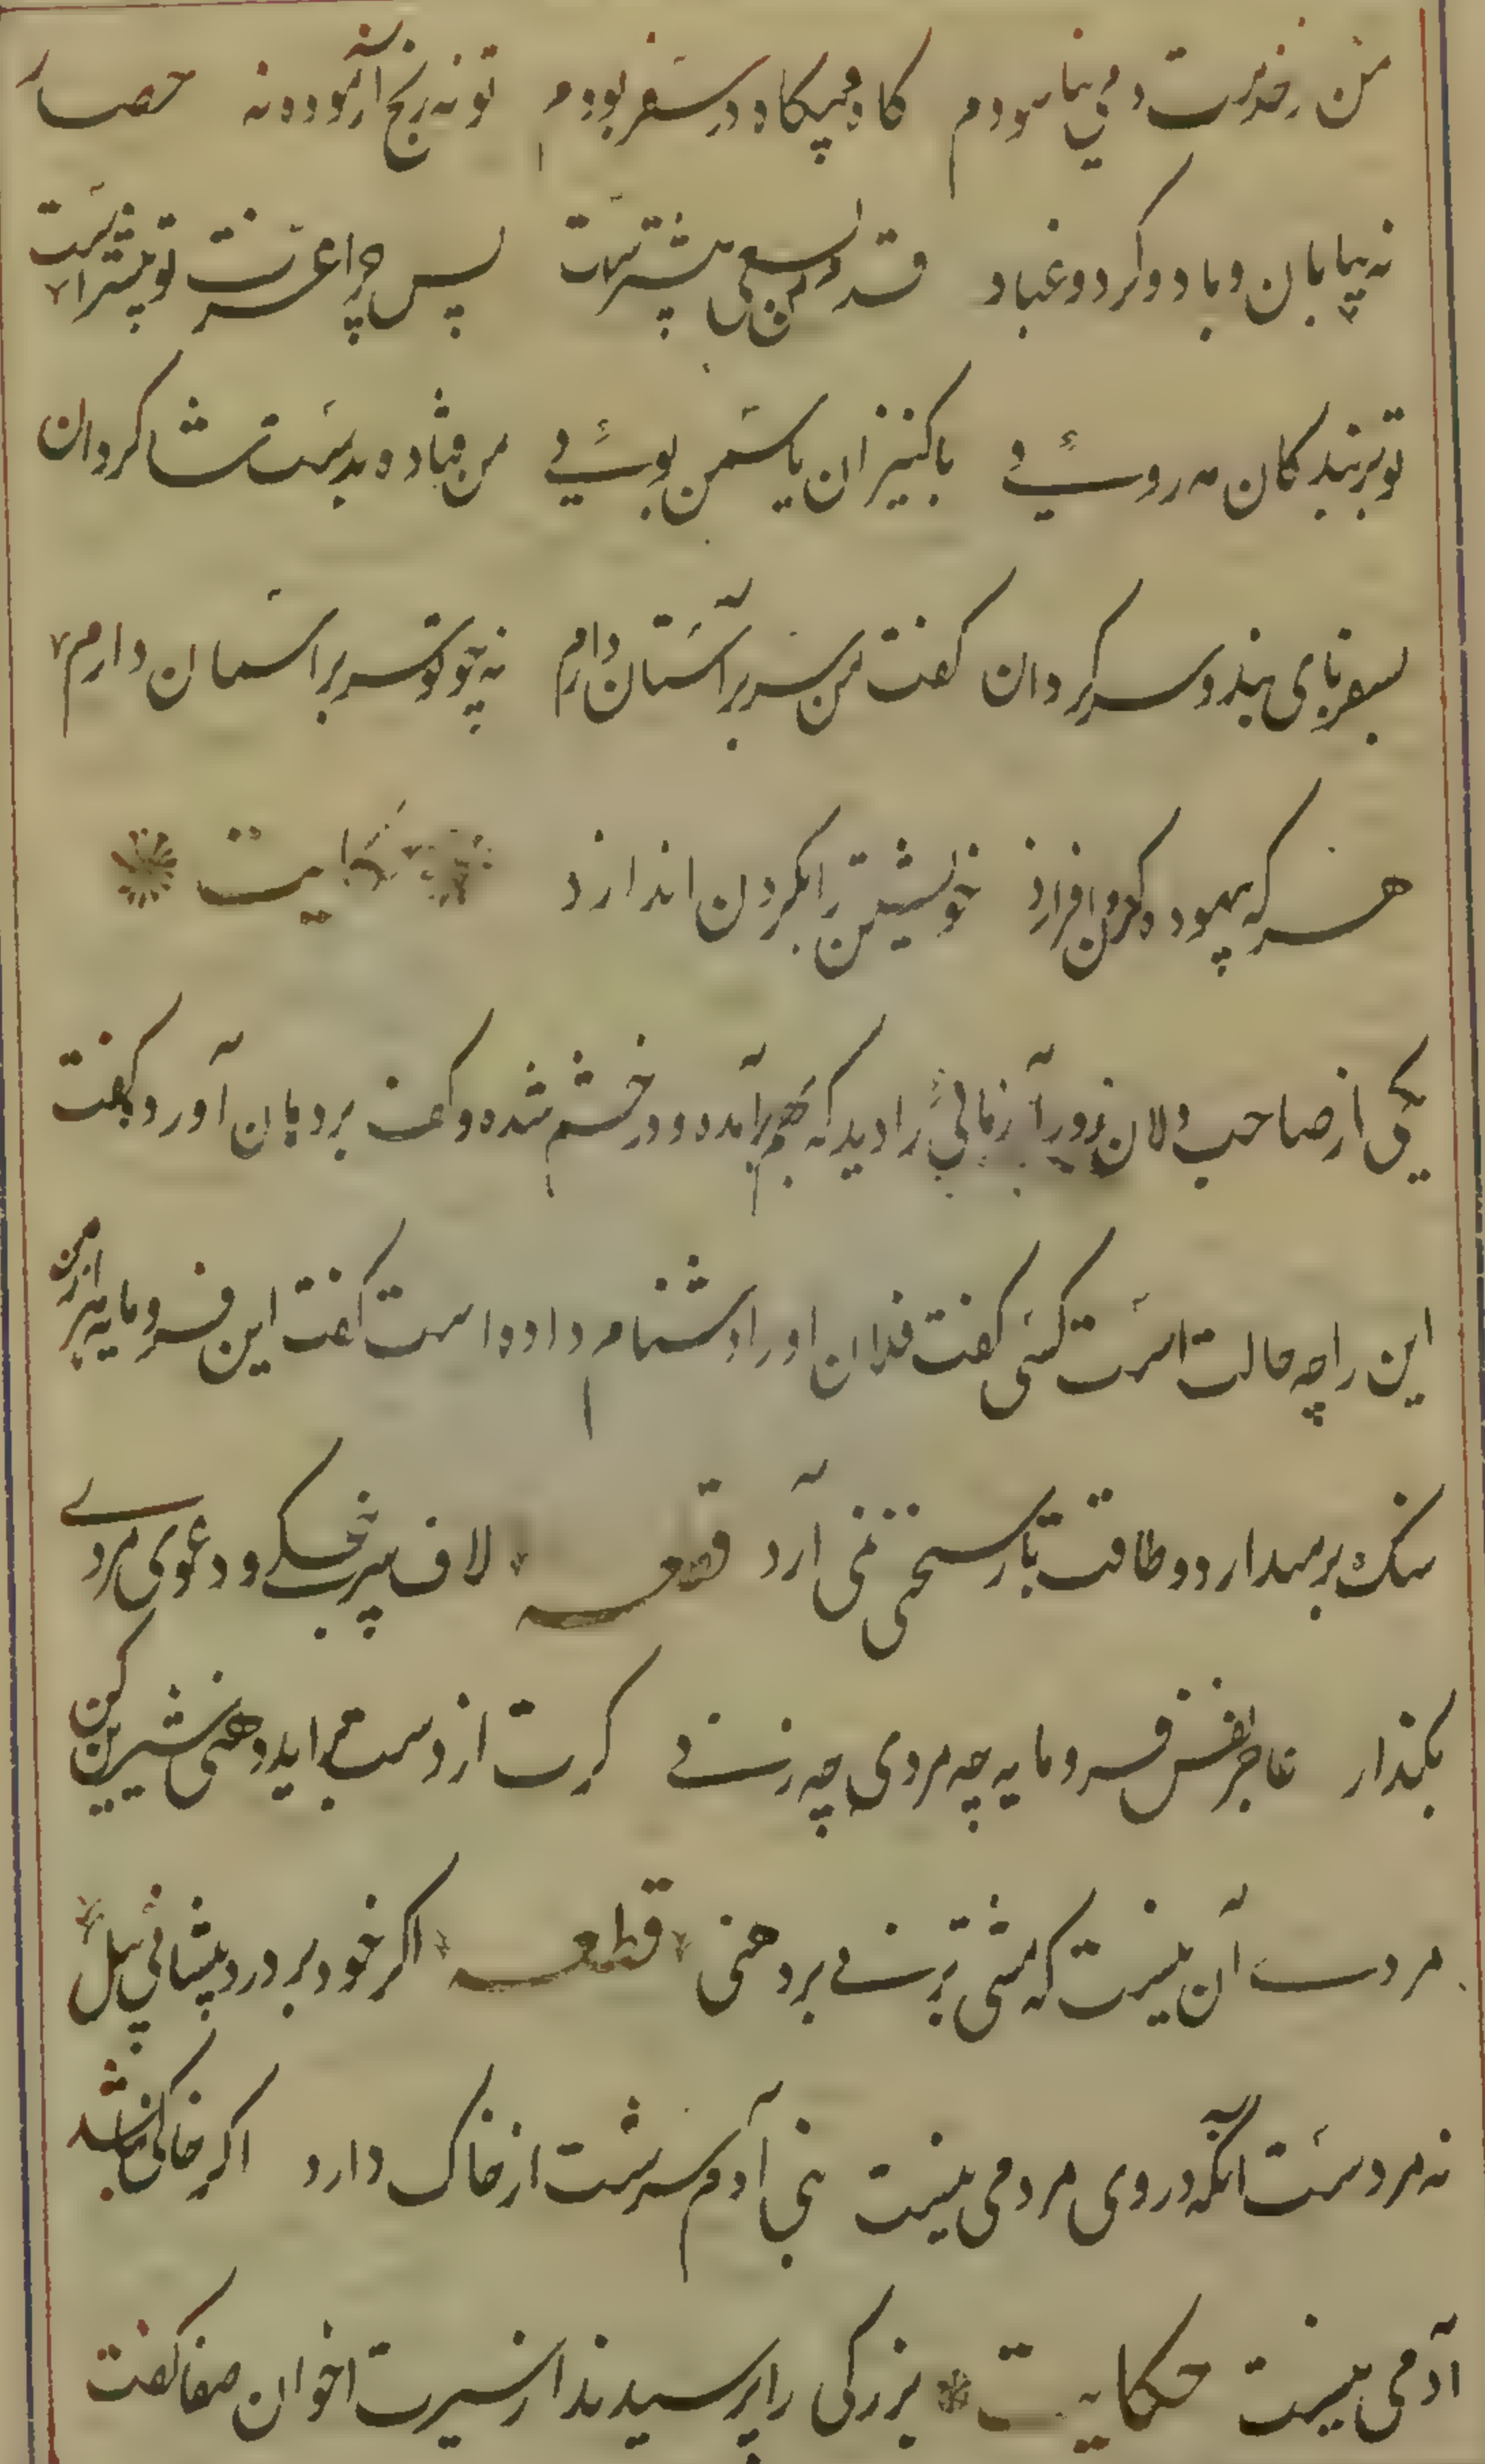 من ز خدمت دمی نیاسودم کاه و بیکاه در سفر بودم تو نه رنج آزموده نه حصار
نه بیابان و باد و کرد و غبار قدم من بسعی پیشترست پس چرا عزت تو بیشتر است
تو بر بندکان مه روئی با کنیزان یاسمن بوئی من فتاده بدست شاکردان
بسفر پای بند و سرکردان کفت من سر بر آستان دارم نه چو تو سر بر آسمان دارم
هر که بیهوده کردن افرازد خویشتن را بکردن اندازد حکایت
یکی از صاحب دلان زور آزمائی را دید که بهم برآمده و در خشم شده و کف بر دهان آورده کفت
این را چه حالت است کسی کفت فلان او را دشنام داده است کفت این فرومایه هزار من
سنک برمیدارد و طاقت یک سخن نمی آرد قطعه لاف سرپنجکی و دعوی مردی
بکذار عاجز نفس فرومایه چه مردی چه زنی کرت از دست براید دهنی شیرین کن
مردی آن نیست که مشتی بزنی بر دهنی قطعه اکر خود بردرد پیشانی پیل
نه مردست آنکه در وی مردمی نیست بنی آدم سرشت از خاک دارد اکر خاکی نباشد
آدمی نیست حکایت بزرکی را پرسیدند از سیرت اخوان صفا کفت